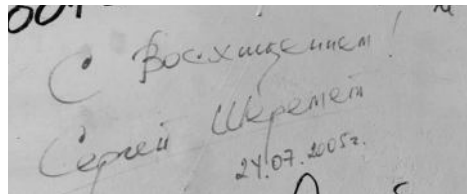 С Восхищением!
Сергей Шеремет
24.07.2005г.